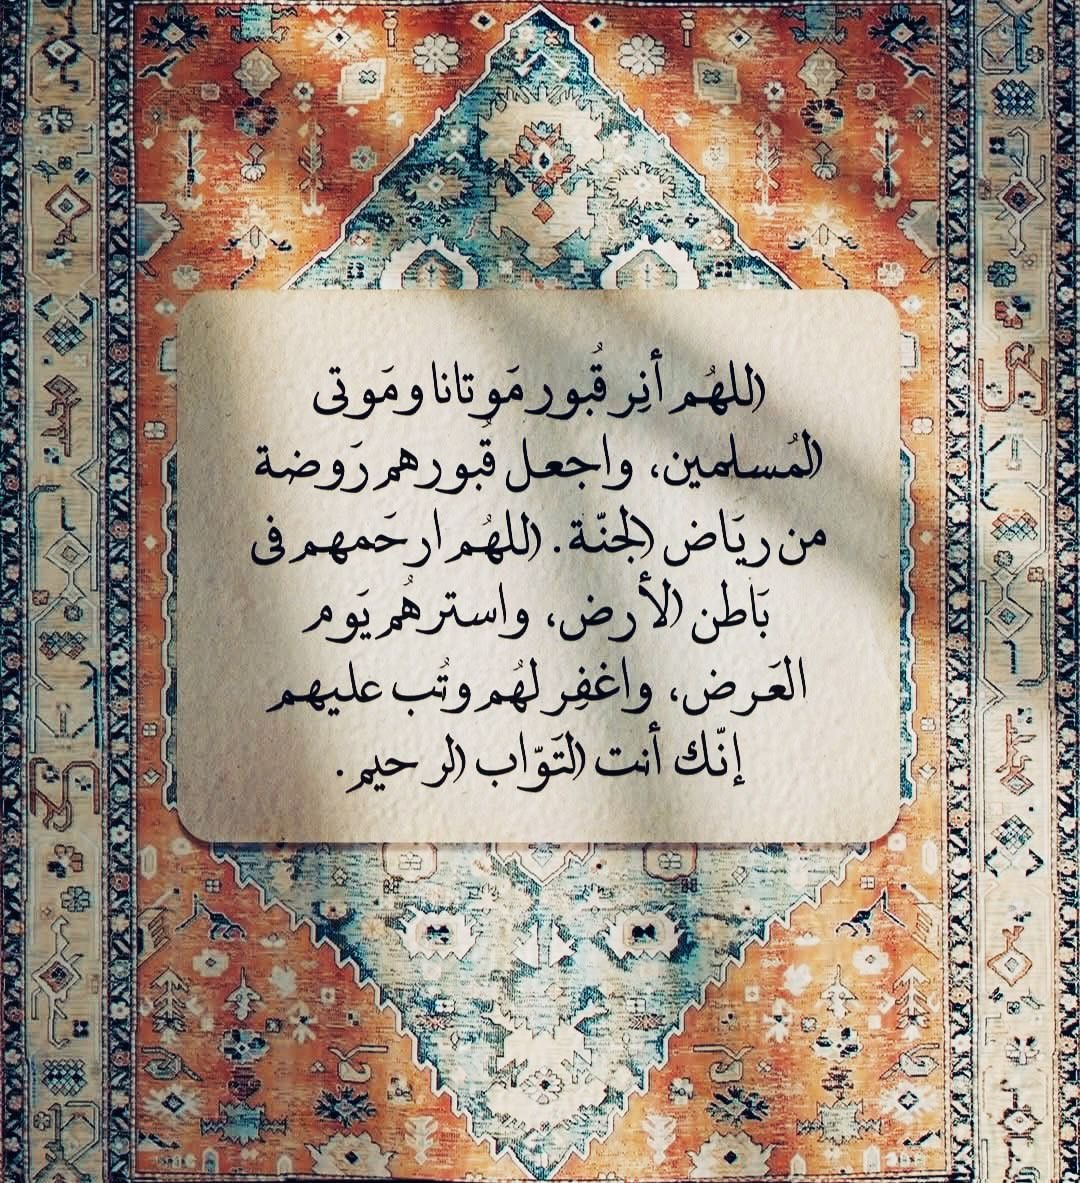 اللهُم أنِر قُبور مَوتانا ومَوتى
المُسلمين، واجعل قُبورهم رَوضة
من ريَاض الجنّة. اللهُم ارحَمهم فى
بَاطن الأرض، واسترهُم يَوم
العَرض، واغفِر لهُم وتُب عليهم
إنّك أنت التَوّاب الرحيم.